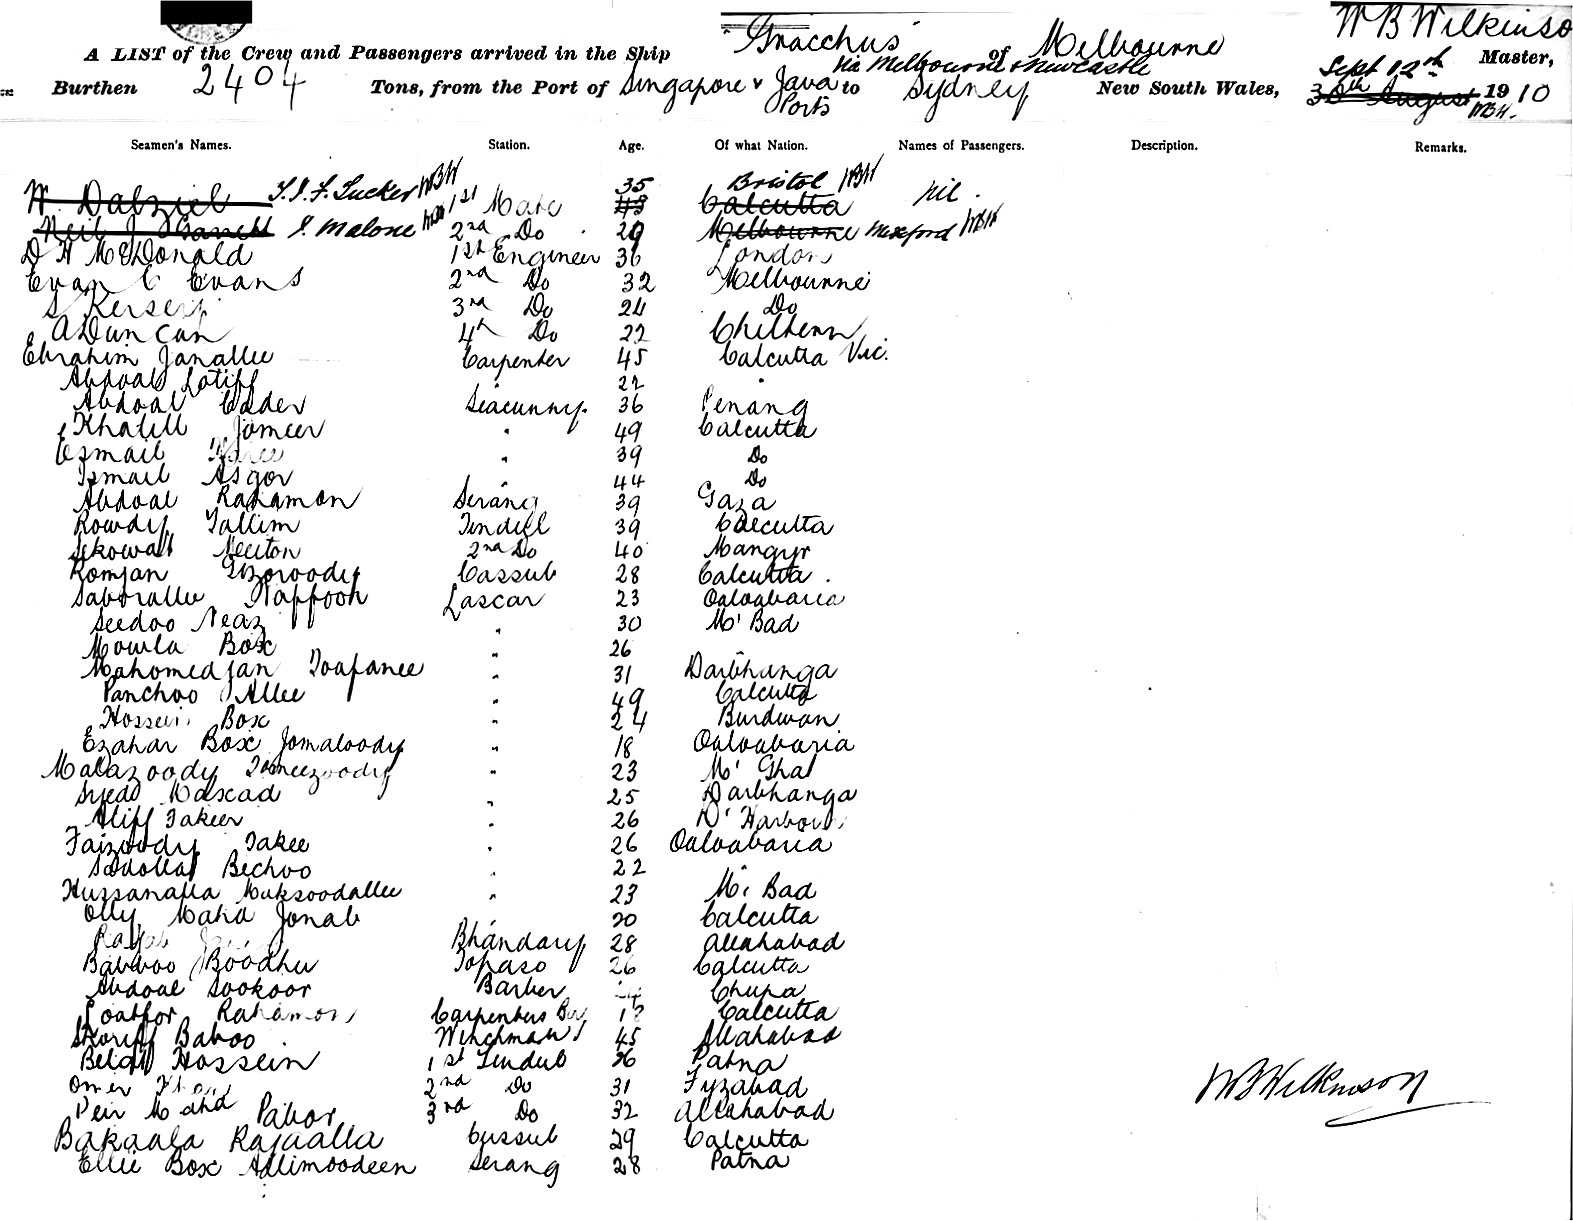 "Gracchus" W B Wilkinso
A LIST of the Crew and Passengers arrived in the Ship of Melbourne Master,
via Melbourne & Newcastle Sept 12th
Burthen 2404 Tons, from the Port of Singapore & Java Ports to Sydney New South Wales, 30th August 1910
WBW.
Seamen's Names. Station. Age. Of what Nation. Names of Passengers. Description. Remarks.
W. Dalziel Tucker WBW 1st Mate 35 43 Bristol WBW Calcutta nil.
Neil J. Malone 2nd Do 29 Melbourne WBW
D H McDonald 1st Engineer 36 London
Evan C Evans 2nd Do 32 Melbourne
S Kersey 3rd Do 24 Do
A Duncan 4th Do 22 Chiltern
Ebrahim Janallee Carpenter 45 Calcutta Vic.
Abdoal Latiff 22 "
Abdoal Cader Seacunny. 36 Penang
Khalill Jomeer " 49 Calcutta
Esmail " 39 Do
Ismail Asgor 44 Do
Abdoal Rahamon Serang 39 Gaza
Rowdy Tallim Tindell 39 Calcutta
Sekowat 2nd Do 40 Mangyr
Romjan Cassub 28 Calcutta.
Saborallee Lascar 23 Ooloobaria
Seedoo Neaz " 30 M' Bad
Mowla Box " 26
Mahomedjan Toofanee " 31 Darbhanga
Panchoo Allee " 49 Calcutta
Hossein Box " 24 Burdwan
Ezahar Box Jomaloody " 18 Ooloobaria
Malazoody Tomeezoody " 23 M' Ghal
Syead Maxcad " 25 Darbhanga
Aliff Fakeer " 26 D' Harbour
Faizoody Fakee " 26 Ooloobaria
Bechoo " 22 "
Hussanalla Muksoodallee " 23 M. Bad
Olly Mahd Jonab " 20 Calcutta
Bhandary 28 Allahabad
Babboo Boodhu Topaso 26 Calcutta
Abdoal Sookoor Barber Chupa
Loatfor Rahamon Carpenters Calcutta
Shariff Baboo Winchman 45 Allahabad
Hossein 1st Tindub 36 Patna
Omer Khan 2nd Do 31 Fyzabad
Peir Mahd Pabor 3rd Do 32 Allahabad
Bakaala Rajaalla Cussub 29 Calcutta
Ellie Box Adlimoodeen Serang 28 Patna
W B Wilkinson